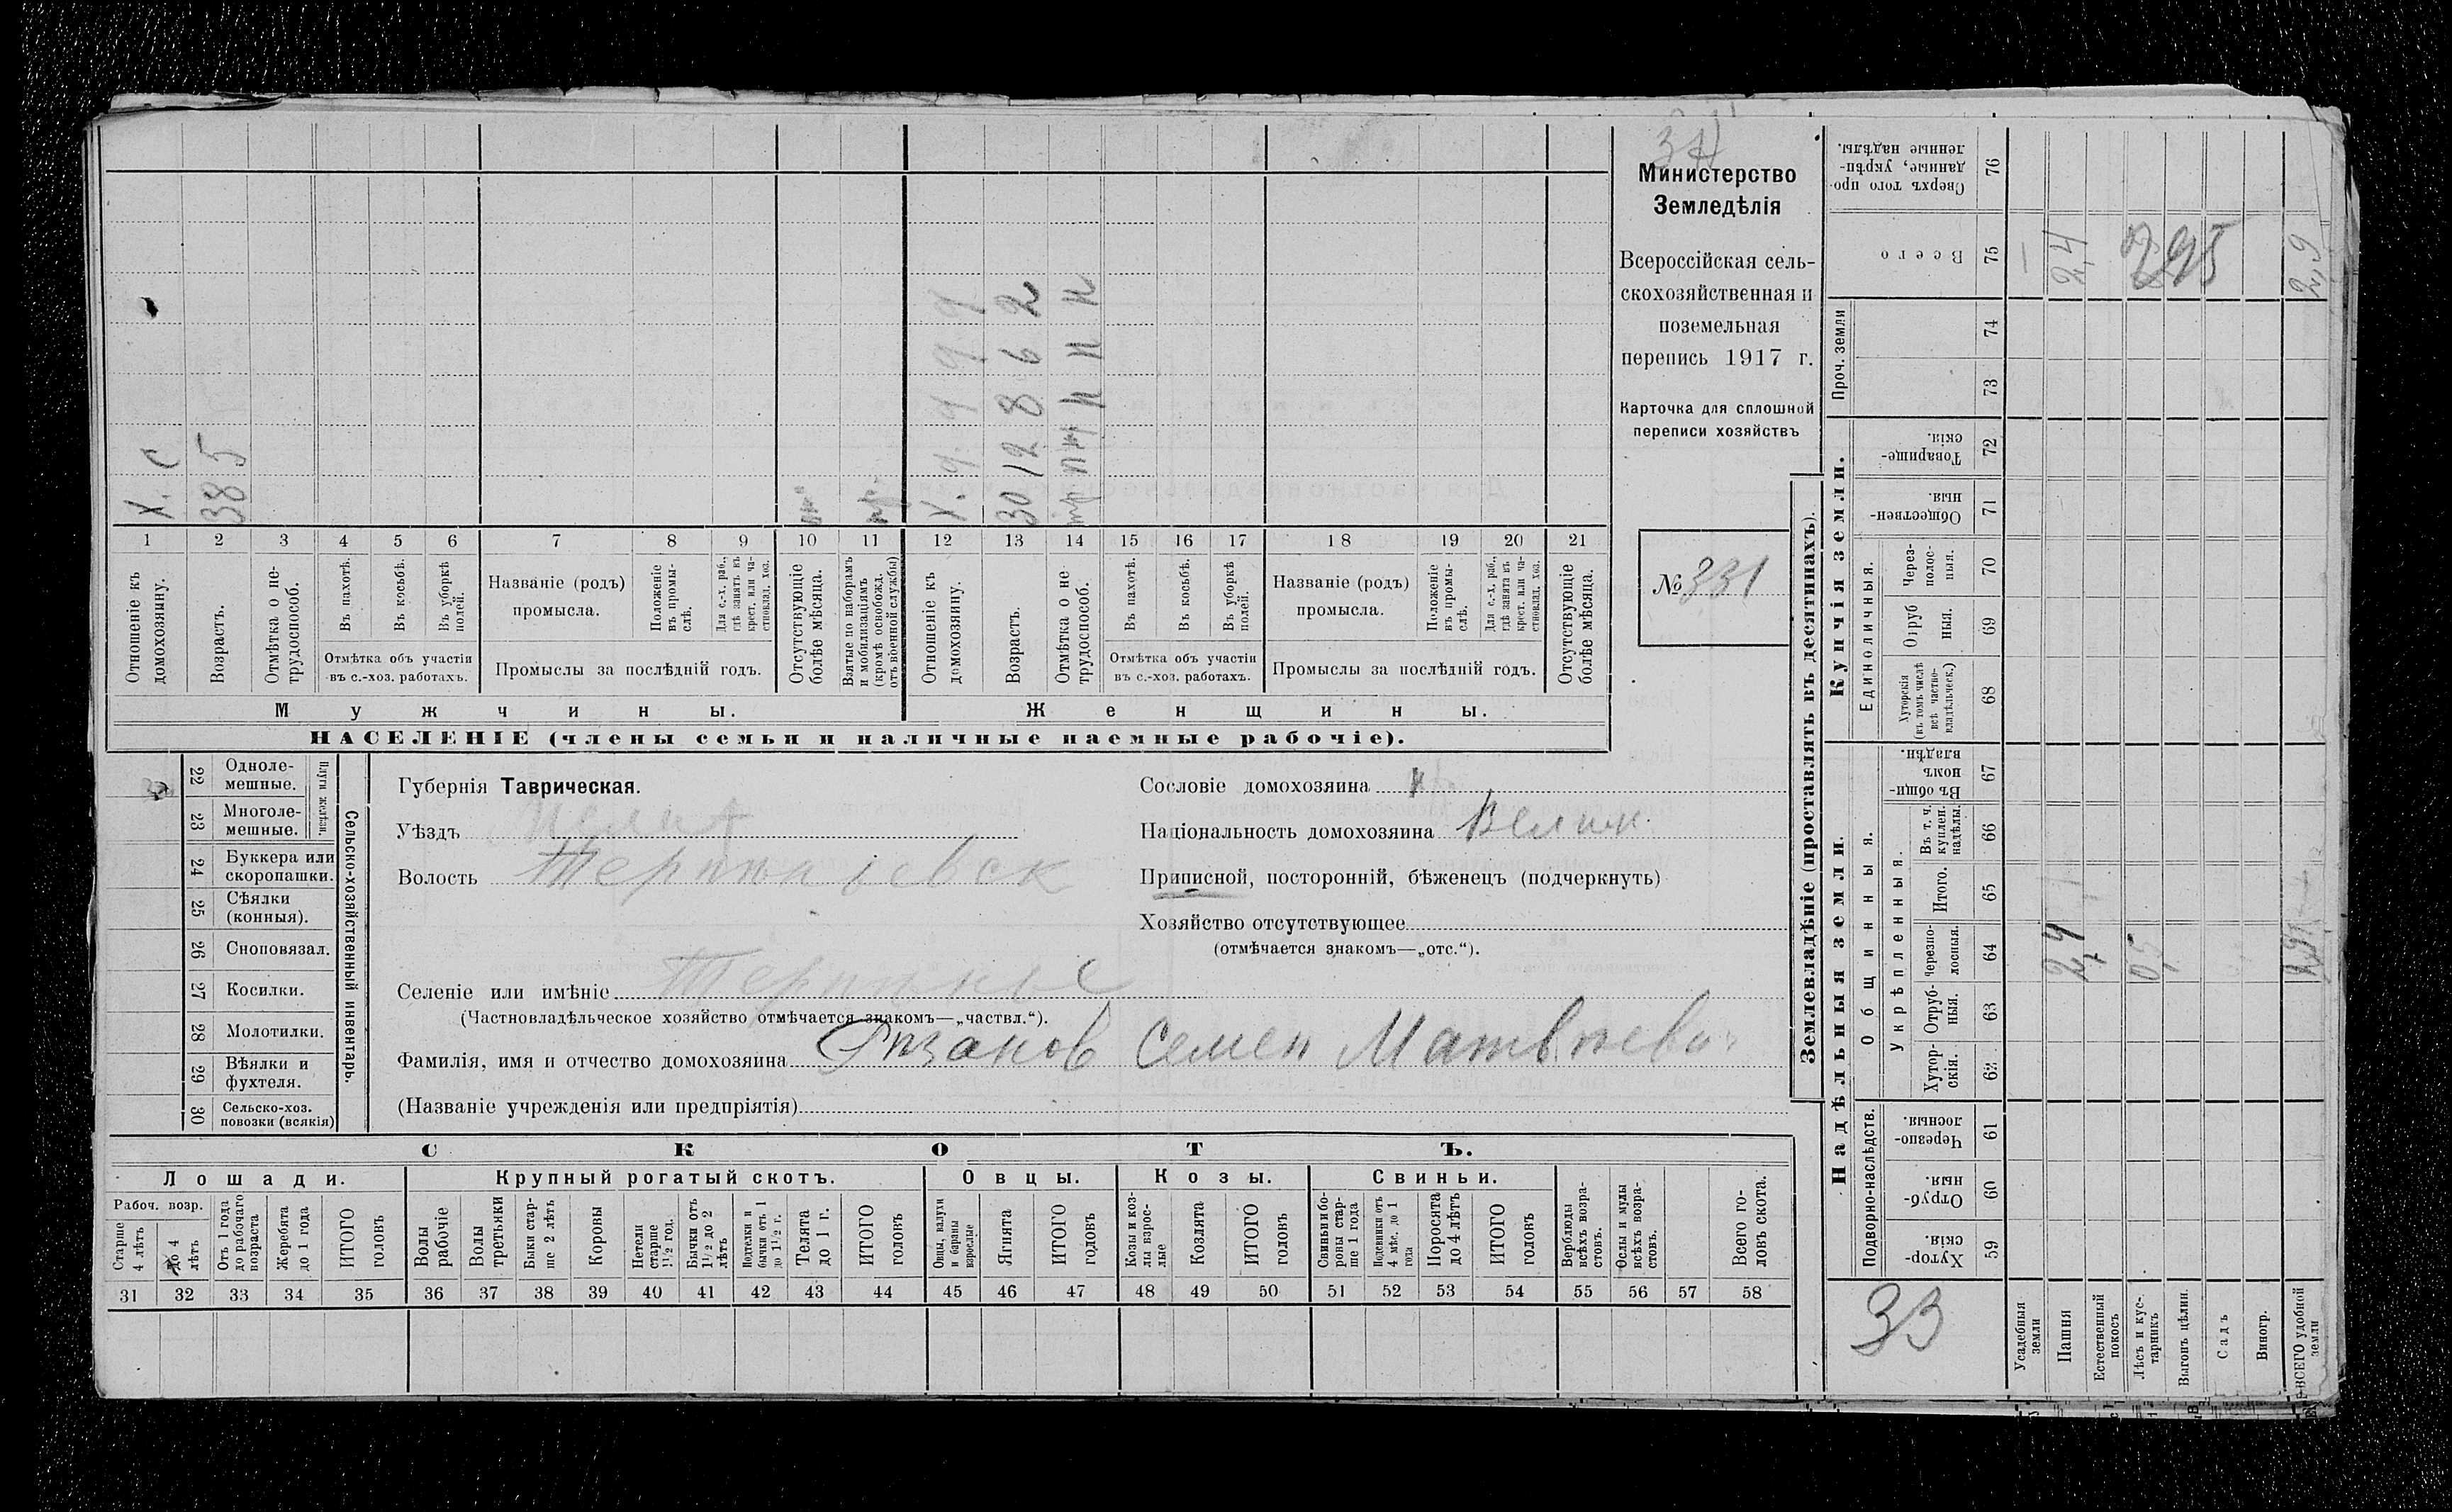 Министерство
Земледѣлія
Всероссійская сель-
скохозяйственная и
поземельная
перепись 1917 г.
Карточка для сплошной
переписи хозяйствъ
№ 331
Х. С
38 5
Х. д. д д д д
30 12 8 6 2
1 2 3 4 5 6 7 8 9 10 11 12 13 14 15 16 17 18 19 20 21
Отношеніе къ домохозяину.
Возрастъ.
Отмѣтка о не-
трудоспособ.
Въ пахотѣ.
Въ косьбѣ.
Въ уборкѣ полей.
Отмѣтка объ участіи
въ с.-хоз. работахъ.
Названіе (родъ)
промысла.
Положеніе въ промы-
слѣ.
Для с.-х. раб., гдѣ занятъ въ крест. или ча-
стновлад. хоз.
Промыслы за послѣдній годъ.
Отсутствующіе болѣе мѣсяца.
Взятые по наборамъ и мобилизаціямъ (кромѣ освобожд. отъ военной службы)
Отношеніе къ домохозяину.
Возрастъ.
Отмѣтка о не
трудоспособ.
Въ пахотѣ.
Въ косьбѣ.
Въ уборкѣ полей.
Отмѣтка объ участіи
въ с.-хоз. работахъ.
Названіе (родъ)
промысла.
Положеніе въ промы-
слѣ.
Для с.-х. раб., гдѣ занятъ въ крест. или ча-
стновлад. хоз.
Промыслы за послѣдній годъ.
Отсутствующіе болѣе мѣсяца.
Мужчины.
Женщины.
НАСЕЛЕНІЕ (члены семьи и наличные наемные рабочіе).
22 Одноле-
мешные.
23 Многоле-
мешные.
Плуги желѣзн.
24 Буккера или
скоропашки.
25 Сѣялки
(конныя).
26 Сноповязал.
27 Косилки.
28 Молотилки.
29 Вѣялки и
фухтеля.
30 Сельско-хоз.
повозки (всякія)
Сельско-хозяйственный инвентарь.
Губернія Таврическая.
Уѣздъ
Волость
Селеніе или имѣніе
(Частновладѣльческое хозяйство отмѣчается знакомъ—„частвл.“).
Фамилія, имя и отчество домохозяина Рязанов Семен Матвѣевич
(Названіе учрежденія или предпріятія)
Сословіе домохозяина
Національность домохозяина Велик.
Приписной, посторонній, бѣженецъ (подчеркнуть)
Хозяйство отсутствующее
(отмѣчается знакомъ—„отс.“).
СКОТЪ.
Лошади.
Крупный рогатый скотъ.
Овцы.
Козы.
Свиньи.
Рабоч. возр.
Старше 4 лѣтъ
до 4 лѣтъ
Отъ 1 года до рабочаго возраста
Жеребята до 1 года
ИТОГО головъ
Волы рабочіе
Волы третьяки
Быки стар-
ше 2 лѣтъ
Коровы
Нетели старше 1½ год.
Бычки отъ 1½ до 2 лѣтъ
Подтелки и бычки отъ 1 до 1½ г.
Телята до 1 г.
ИТОГО головъ
Овцы, валухи и бараны взрослые
Ягнята
ИТОГО головъ
Козы и коз-
лы взрос-
лые
Козлята
ИТОГО головъ
Свиньи и бо-
ровы стар-
ше 1 года
Подсвинки отъ 4 мѣс. до 1 года
Поросята до 4 лѣтъ
ИТОГО головъ
Верблюды всѣхъ возра-
стовъ.
Ослы и мулы всѣхъ возра-
стовъ.
Всего го-
ловъ скота.
31 32 33 34 35 36 37 38 39 40 41 42 43 44 45 46 47 48 49 50 51 52 53 54 55 56 57 58
Землевладѣніе (проставлять въ десятинахъ).
Купчія земли.
Надѣльныя земли.
Проч. земли
Единоличныя.
Общинныя.
Укрѣпленныя.
Подворно-наслѣдств.
Сверхъ того про-
данные, укрѣп-
ленные надѣлы. 76
Всего 75
74
73
Товарище-
скія. 72
Обществен-
ныя. 71
Через-
полос-
ныя. 70
Отруб
ныя. 69
Хуторскія (въ томъ числѣ всѣ частно-
владѣльческ.) 68
Въ общи-
номъ
владѣн. 67
Въ т. ч. куплен. надѣлы. 66
Итого. 65
Черезпо-
лосныя. 64
Отруб-
ныя. 63
Хутор-
скія. 62
Черезпо-
лосныя 61
Отруб-
ныя. 60
Хутор-
скія. 59
33
Усадебныя земли
Пашня 2,4 2,4
Естественный покосъ
Лѣсъ и кус-
тарникъ 0,5
Выгонъ цѣлин.
Садъ
Виногр.
ВСЕГО удобной земли 2,9